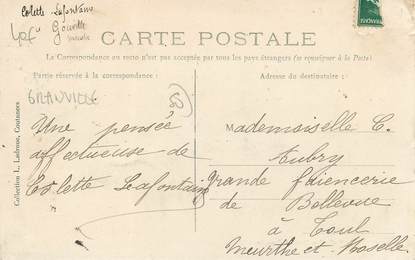 Colette Lafontaine
40F
Gouville
Manche
CARTE POSTALE
La Correspondance au recto n'est pas acceptée par tous les pays étrangers (se renseigner à la Poste)
Partie réservée à la correspondance :
Adresse du destinataire :
GRANVILLE
50
Une pensée
affectueuse de
Colette Lafontaine
Mademoiselle C.
Aubry
Grande faïencerie
de Bellevue
à Toul
Meurthe-et-Moselle
Collection L. Ladroue, Coutances